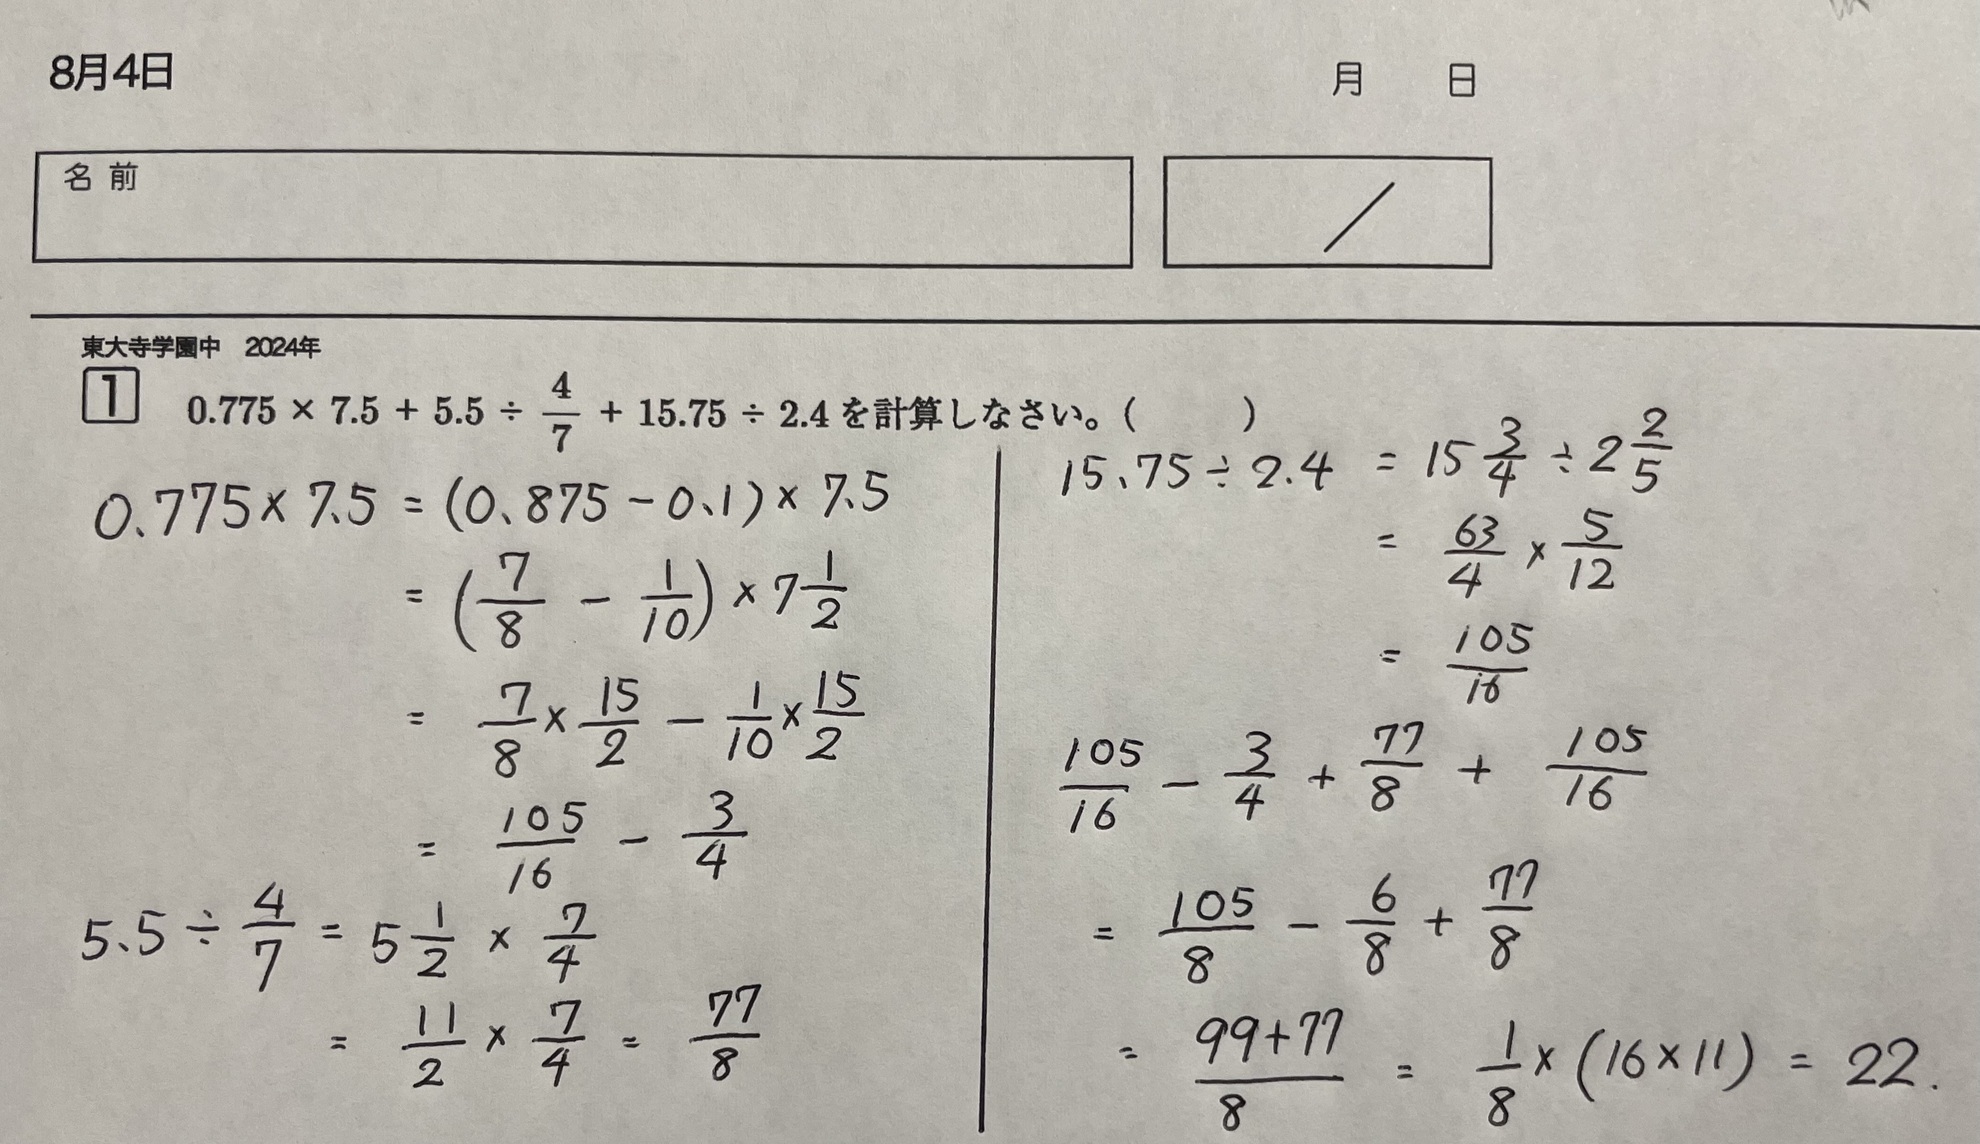 8月4日
月 日
名前
/
東大寺学園中 2024年
1 0.775 × 7.5 + 5.5 ÷ 4/7 + 15.75 ÷ 2.4 を計算しなさい。( )
0.775 × 7.5 = (0.875 - 0.1) × 7.5
= (7/8 - 1/10) × 7 1/2
= 7/8 × 15/2 - 1/10 × 15/2
= 105/16 - 3/4
5.5 ÷ 4/7 = 5 1/2 × 7/4
= 11/2 × 7/4 = 77/8
15.75 ÷ 2.4 = 15 3/4 ÷ 2 2/5
= 63/4 × 5/12
= 105/16
105/16 - 3/4 + 77/8 + 105/16
= 105/8 - 6/8 + 77/8
= 99+77/8 = 1/8 × (16 × 11) = 22.